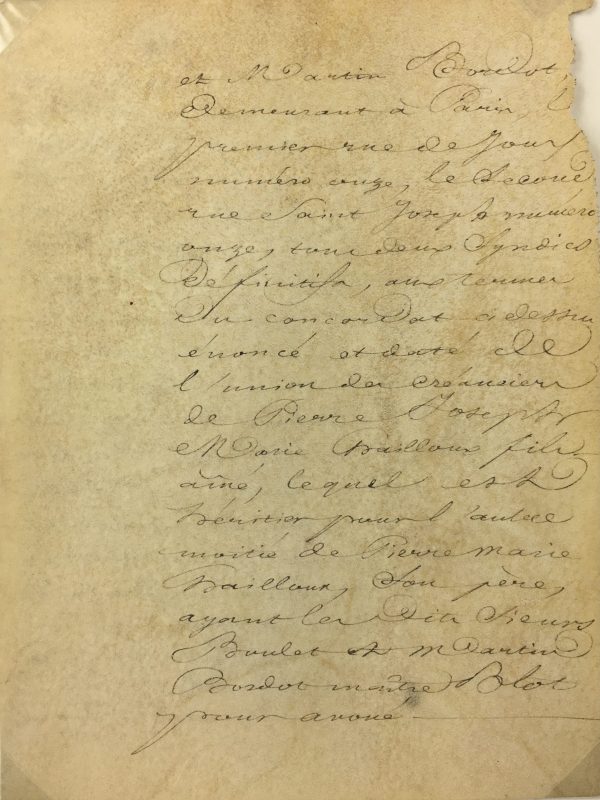 et Martin Bordot,
demeurant à Paris, l
premier rue de Jour
numéro onze, le Second
rue Saint Joseph numéro
onze, tous deux Syndics
définitifs, aux termes
du concordat ci dessus
énoncé et daté de
l'union des créanciers
de Pierre Joseph
Marie hailloux fils
aîné, lequel est
héritier pour l'autre
moitié de Pierre marie
hailloux, Son père,
ayant les dits Sieurs
Boulet et Martin
Bordot maître Blot
pour avoué